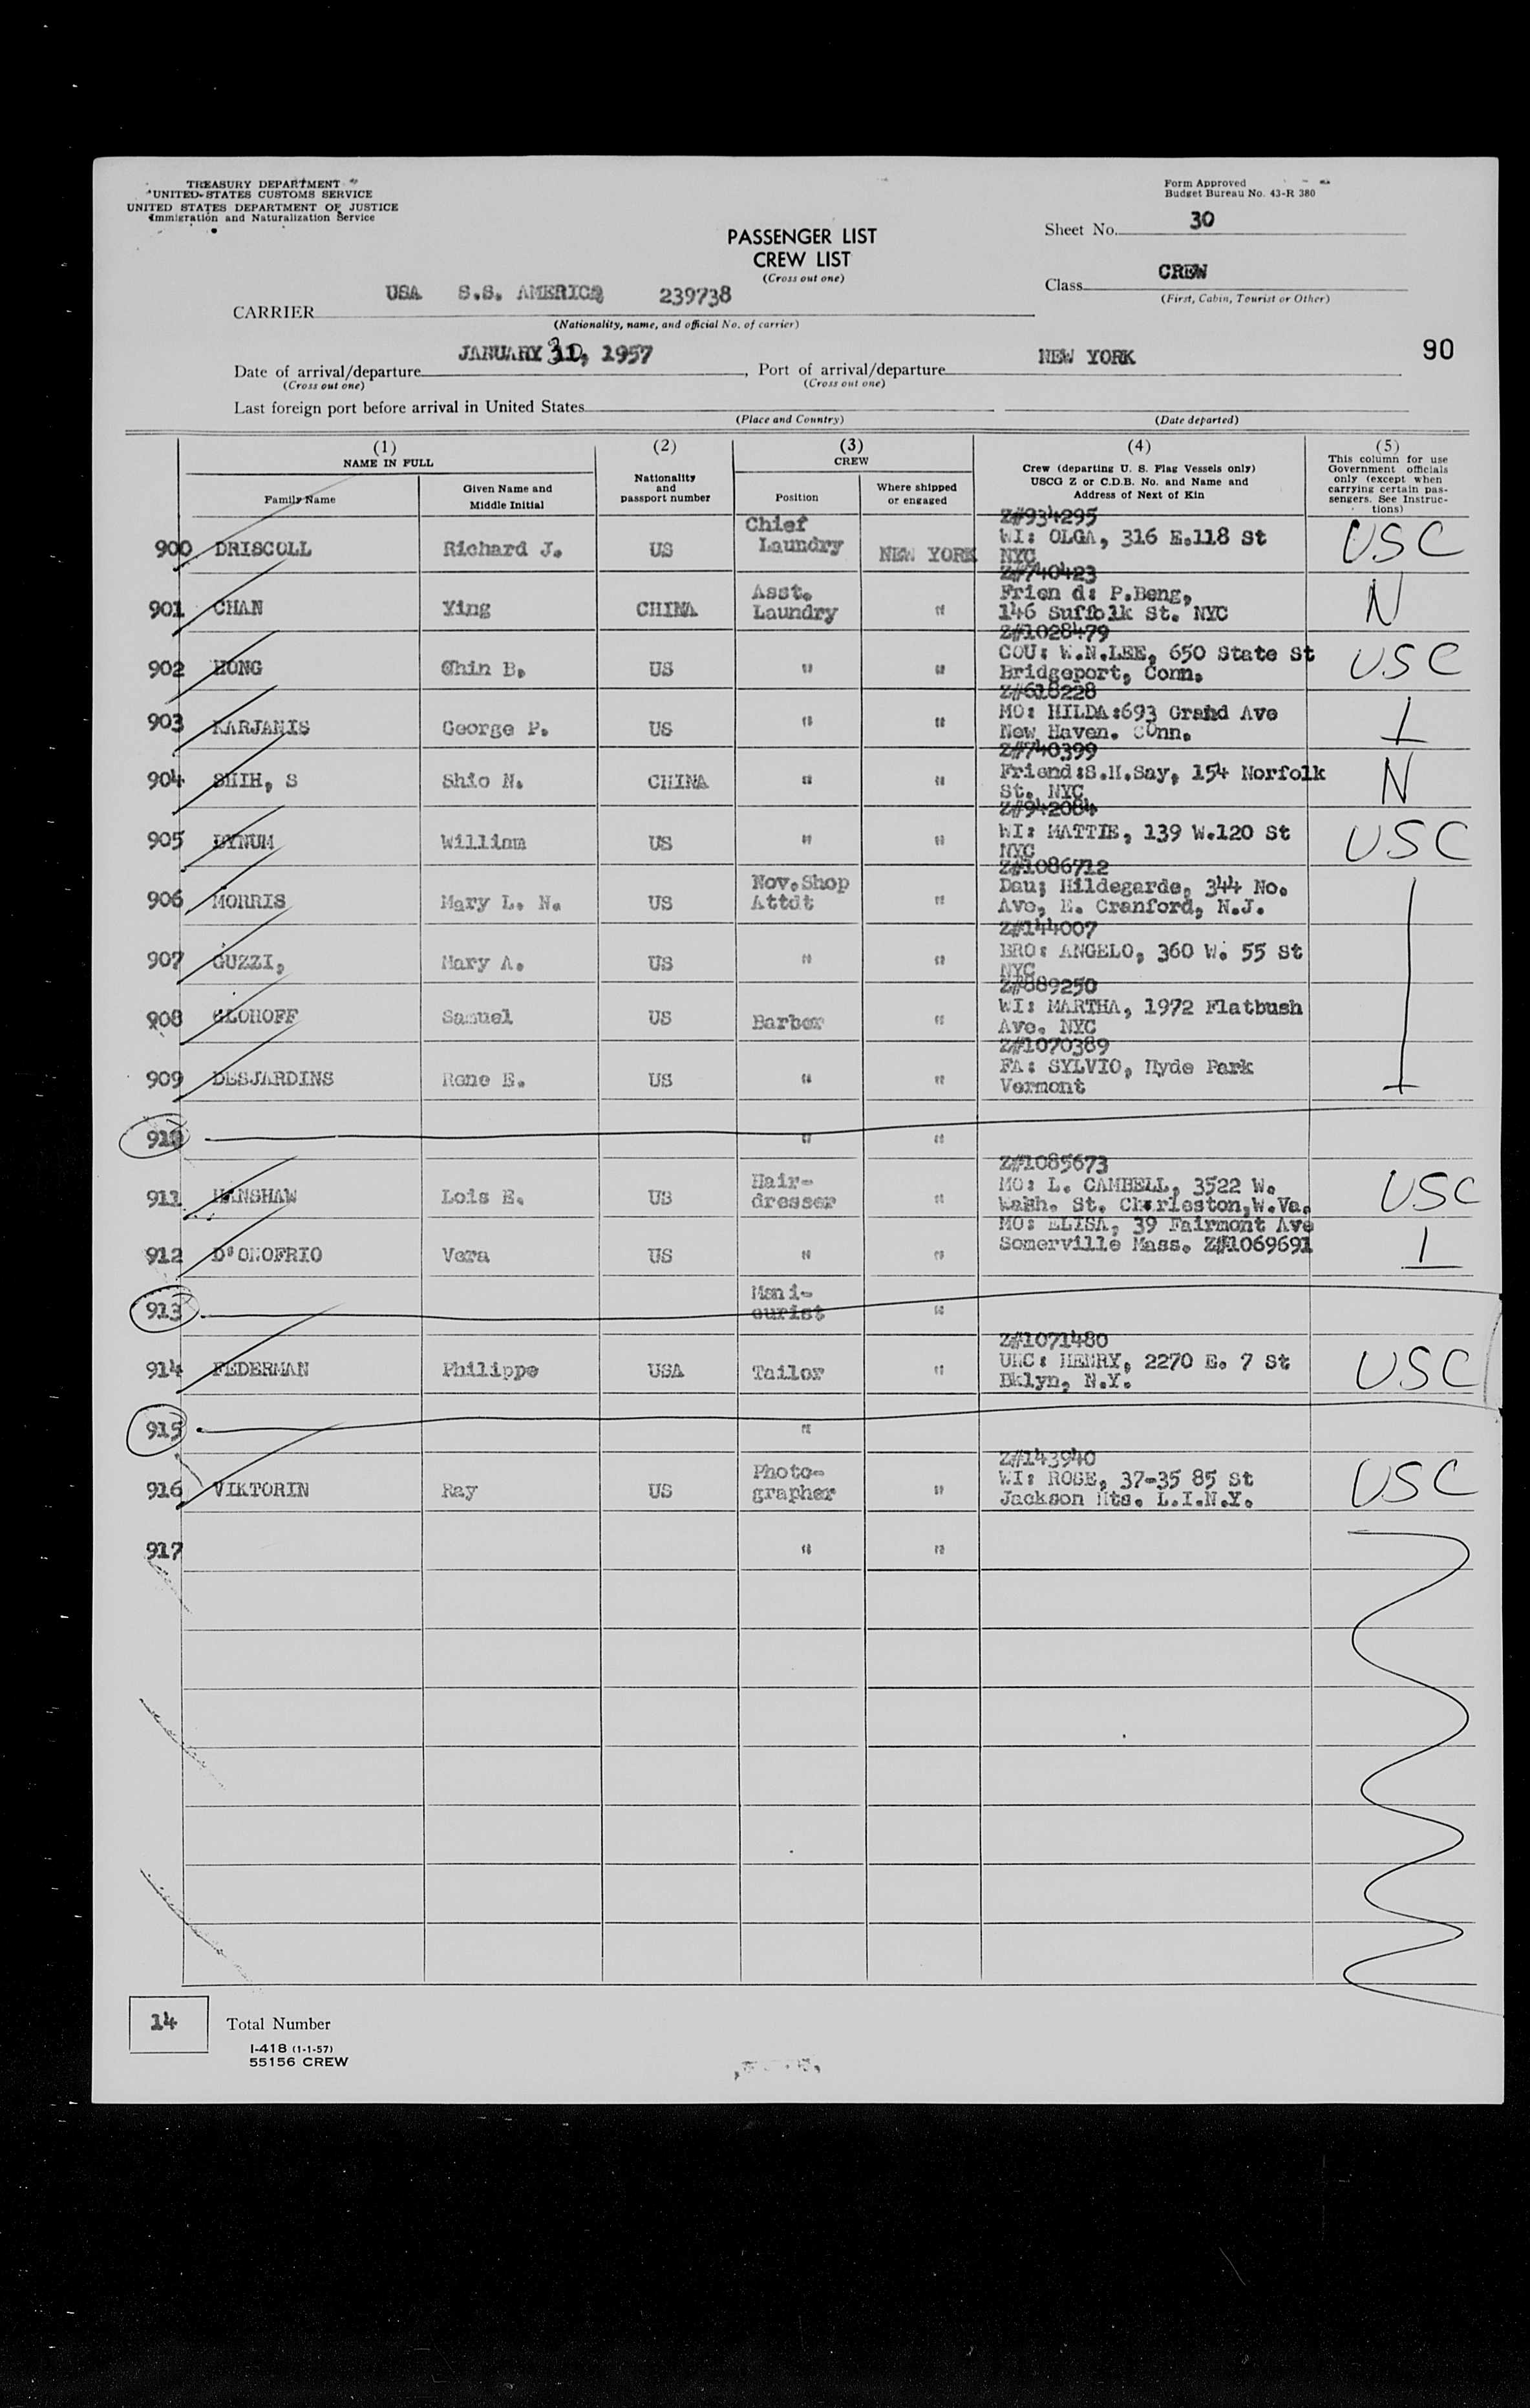 TREASURY DEPARTMENT
UNITED STATES CUSTOMS SERVICE
UNITED STATES DEPARTMENT OF JUSTICE
Immigration and Naturalization Service
Form Approved
Budget Bureau No. 43-R 380
Sheet No. 30
PASSENGER LIST
CREW LIST
(Cross out one)
Class CREW
(First, Cabin, Tourist or Other)
CARRIER USA S.S. AMERICA 239738
(Nationality, name, and official No. of carrier)
Date of arrival/departure JANUARY 30, 1957, Port of arrival/departure NEW YORK
90
(Cross out one) (Cross out one)
Last foreign port before arrival in United States
(Place and Country) (Date departed)
(1) (2) (3) (4) (5)
NAME IN FULL
Family Name
Given Name and
Middle Initial
Nationality
and
passport number
CREW
Position
Where shipped
or engaged
Crew (departing U. S. Flag Vessels only)
USCG Z or C.D.B. No. and Name and
Address of Next of Kin
This column for use
Government officials
only (except when
carrying certain pas-
sengers. See Instruc-
tions)
Z#934295
Chief
WI: OLGA, 316 E.118 St
900 DRISCOLL Richard J. US Laundry NEW YORK NYC USC
Z#740423
Asst. Frien d: P.Beng,
901 CHAN Ying CHINA Laundry " 146 Suffolk St. NYC N
Z#1028479
COU: W.N.LEE, 650 State St
902 HONG Chin B. US " " Bridgeport, Conn. USC
Z#618228
MO: HILDA:693 Grand Ave
903 KARJANIS George P. US " " New Haven. COnn.
Z#740399
Friend:S.H.Say, 154 Norfolk
904 SHIH, S Shio N. CHINA " " St. NYC N
Z#942084
WI: MATTIE, 139 W.120 St
905 BYNUM William US " " NYC USC
Z#1086712
Nov.Shop Dau; Hildegarde, 344 No.
906 MORRIS Mary L. N. US Attdt " Ave, E. Cranford, N.J.
Z#144007
BRO: ANGELO, 360 W. 55 St
907 GUZZI, Mary A. US " " NYC
Z#889250
WI: MARTHA, 1972 Flatbush
908 GLOHOFF Samuel US Barber " Ave. NYC
Z#1070389
FA: SYLVIO, Hyde Park
909 DESJARDINS Rene E. US " " Vermont
910 " "
Z#1085673
Hair- MO: L. CAMBELL, 3522 W.
911 HANSHAW Lois E. US dresser " Wash. St. Charleston,W.Va. USC
MO: ELISA, 39 Fairmont Ave
912 D'ONOFRIO Vera US " " Somerville Mass. Z#1069691
Mani-
913 curist "
Z#1071480
UNC: HENRY, 2270 E. 7 St
914 FEDERMAN Philippe USA Tailor " Bklyn, N.Y. USC
915 "
Z#143940
Photo- WI: ROSE, 37-35 85 St
916 VIKTORIN Ray US grapher " Jackson Hts. L.I.N.Y. USC
917 " "
14 Total Number
I-418 (1-1-57)
55156 CREW